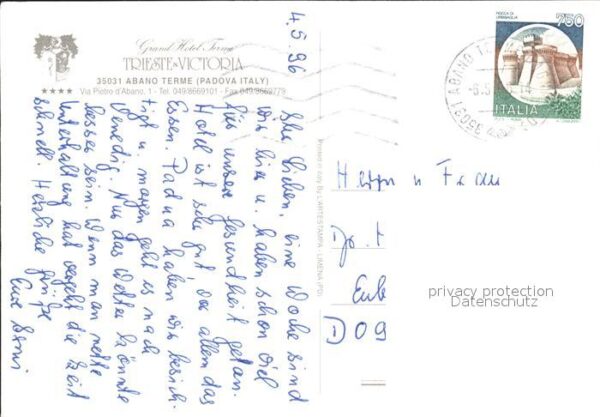 Grand Hotel Terme
TRIESTE & VICTORIA
★★★★
35031 ABANO TERME (PADOVA ITALY)
Via Pietro d'Abano, 1 - Tel. 049/8669101 - Fax 049/8669779
4.5.96
Ihr Lieben, eine Woche sind
wir hier u. haben schon viel
für unsere Gesundheit getan.
Hotel ist sehr gut vor allem das
Essen. Padua haben wir besich-
tigt u. morgen geht es nach
Venedig. Nur das Wetter könnte
besser sein. Wenn man nette
Unterhaltung hat vergeht die Zeit
schnell. Herzliche Grüße
Eure
Printed in Italy By L'ARTESTAMPA - LIMENA (PD)
ROCCA DI
URBISAGLIA
750
ITALIA
ABANO
35031
Herrn u Frau
D 09
privacy protection
Datenschutz